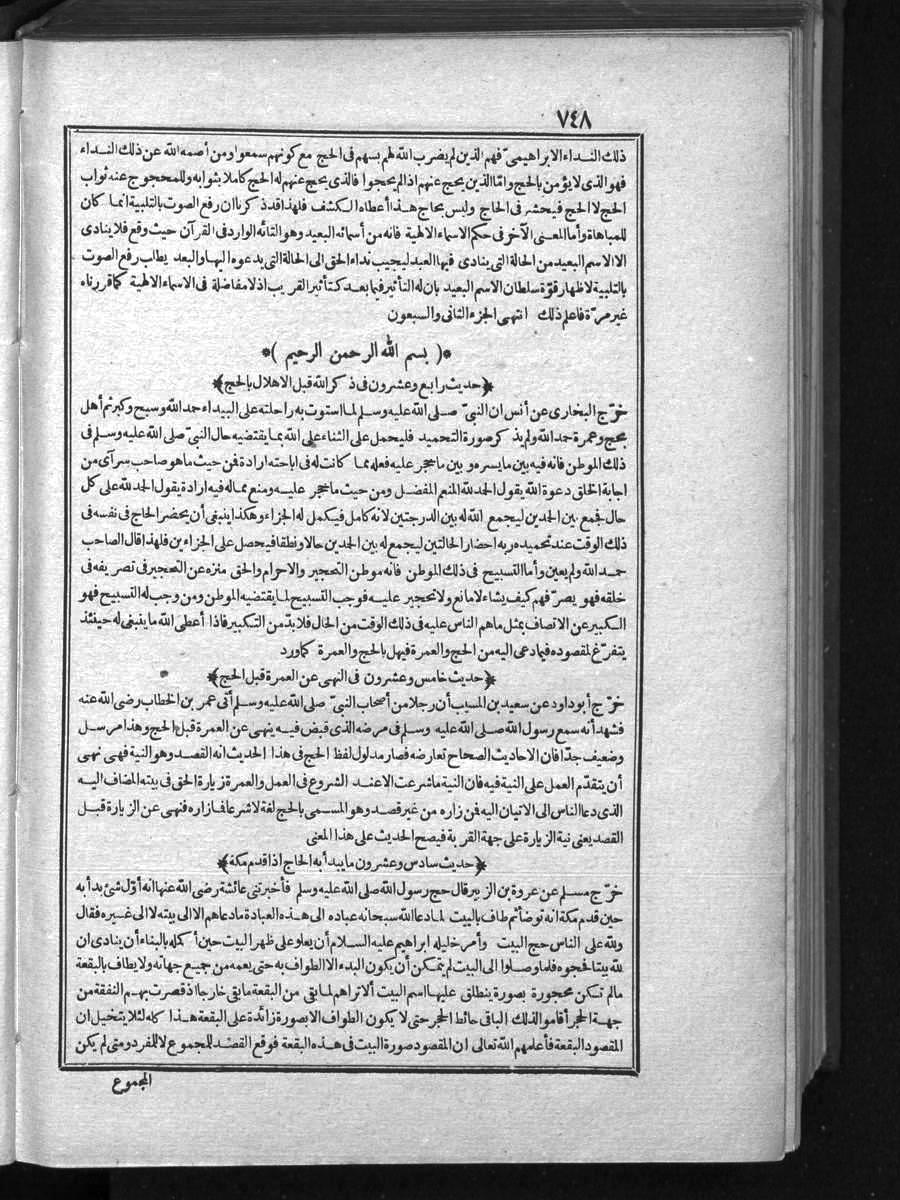 ٧٤٨
ذلك النداء الابراهيمى فهم الذين لم يضرب الله لهم بسهم فى الحج مع كونهم سمعوا ومن أصمه الله عن ذلك النداء
فهو الذى لا يؤمن بالحج وامّا الذين يحج عنهم اذا لم يحجوا فالذى يحج عنهم له الحج كاملا بثوابه وللمحجوج عنه ثواب
الحج لا الحج فيحشر فى الحاج وليس بحاج هذا أعطاه الكشف فلهذا قد ذكرنا ان رفع الصوت بالتلبية انما كان
للمباهاة وأما المعنى الآخر فى حكم الاسماء الالهية فانه من أسمائه البعيد وهو التائه الوارد فى القرآن حيث وقع فلا ينادى
الا الاسم البعيد من الحالة التى ينادى فيها العبد ليجيب نداء الحق الى الحالة التى يدعوه اليها والبعد يطلب رفع الصوت
بالتلبية لاظهار قوّة سلطان الاسم البعيد بان له التأثير فيما بعد كتأثير القريب اذ لا مفاضلة فى الاسماء الالهية كما قررناه
غير مرّة فاعلم ذلك انتهى الجزء الثانى والسبعون
*( بسم الله الرحمن الرحيم )*
﴿حديث رابع وعشرون فى ذكر الله قبل الاهلال بالحج﴾
خرّج البخارى عن أنس ان النبىّ صلى الله عليه وسلم لما استوت به راحلته على البيداء حمد الله وسبح وكبر ثم أهل
بحج وعمرة حمد الله ولم يذكر صورة التحميد فليحمل على الثناء على الله بما يقتضيه حال النبىّ صلى الله عليه وسلم فى
ذلك الموطن فانه فيه بين ما يسره و بين ما حجر عليه فعله مما كانت له فى اباحته ارادة فمن حيث ما هو صاحب سرآى من
اجابة الخلق دعوة الله يقول الحمد لله المنعم المفضل ومن حيث ما حجر عليه ومنع مما له فيه ارادة يقول الحمد لله على كل
حال فجمع بين الحمدين ليجمع الله له بين الدرجتين لانه كامل فيكمل له الجزاء وهكذا ينبغى أن يحضر الحاج فى نفسه فى
ذلك الوقت عند تحميده ربه احضار الحالتين ليجمع له بين الحمدين حالا ونطقا فيحصل على الجزاءين فلهذا قال الصاحب
حمد الله ولم يعين وأما التسبيح فى ذلك الموطن فانه موطن التحجير والاحرام والحق منزه عن التحجير فى تصريفه فى
خلقه فهو يصرّفهم كيف يشاء لا مانع ولا تحجير عليه فوجب التسبيح لما يقتضيه الموطن ومن وجب له التسبيح فهو
الكبير عن الاتصاف بمثل ما هم الناس عليه فى ذلك الوقت من الحال فلا بدّ من التكبير فاذا أعطى الله ما ينبغى له حينئذ
يتفرّغ لمقصوده فيما دعى اليه من الحج والعمرة فيهل بالحج والعمرة كما ورد
﴿حديث خامس وعشرون فى النهى عن العمرة قبل الحج﴾
خرّج أبو داود عن سعيد بن المسيب أن رجلا من أصحاب النبىّ صلى الله عليه وسلم أتى عمر بن الخطاب رضى الله عنه
فشهد أنه سمع رسول الله صلى الله عليه وسلم فى مرضه الذى قبض فيه ينهى عن العمرة قبل الحج وهذا مرسل
وضعيف جدّا فان الاحاديث الصحاح تعارضه فصار مدلول لفظ الحج فى هذا الحديث انه القصد وهو النية فهى نهى
أن يتقدّم العمل على النية فيه فان النية ما شرعت الا عند الشروع فى العمل والعمرة زيارة الحق فى بيته المضاف اليه
الذى دعا الناس الى الاتيان اليه فمن زاره من غير قصد وهو المسمى بالحج لغة لا شرعا فما زاره فنهى عن الزيارة قبل
القصد يعنى نية الزيارة على جهة القربة فيصح الحديث على هذا المعنى
﴿حديث سادس وعشرون ما يبدأ به الحاج اذا قدم مكة﴾
خرّج مسلم عن عروة بن الزبير قال حج رسول الله صلى الله عليه وسلم فأخبرتنى عائشة رضى الله عنها انه أوّل شئ بدأ به
حين قدم مكة انه توضأ ثم طاف بالبيت لما دعا الله سبحانه عباده الى هذه العبادة ما دعاهم الا الى بيته لا الى غيره فقال
ولله على الناس حج البيت وأمر خليله ابراهيم عليه السلام أن يعلو على ظهر البيت حين أكمله بالبناء أن ينادى ان
لله بيتا فحجوه فلما وصلوا الى البيت لم يتمكن أن يكون البدء الا الطواف به حتى يعمه من جميع جهاته ولا يطاف بالبقعة
ما لم تكن محجورة بصورة ينطلق عليها اسم البيت ألا تراهم لما بقى من البقعة ما بقى خارجا اذ قصرت بهم النفقة من
جهة الحجر أقاموا لذلك الباقى حائط الحجر حتى لا يكون الطواف الا بصورة زائدة على البقعة هذا كله لئلا يتخيل ان
المقصود البقعة فأعلمهم الله تعالى ان المقصود صورة البيت فى هذه البقعة فوقع القصد للمجموع لا للمفرد ومتى لم يكن
المجموع